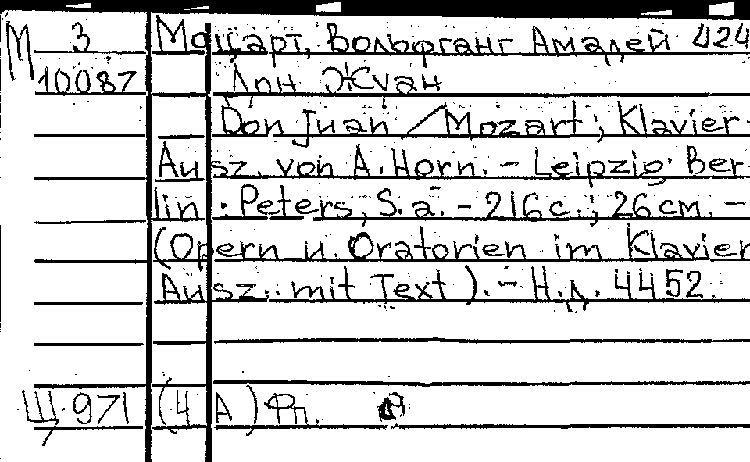 М 3 Моцарт, Вольфганг Амадей 424
10087 Дон Жуан
Don Juan / Mozart; Klavier-
Ausz. von A. Horn. - Leipzig. Ber
lin: Peters, S. a. - 216 с.; 26 см. -
(Opern u. Oratorien im Klavier
Ausz.. mit Text). - Н.д. 4452.
Щ 971 (4 А) Фп.